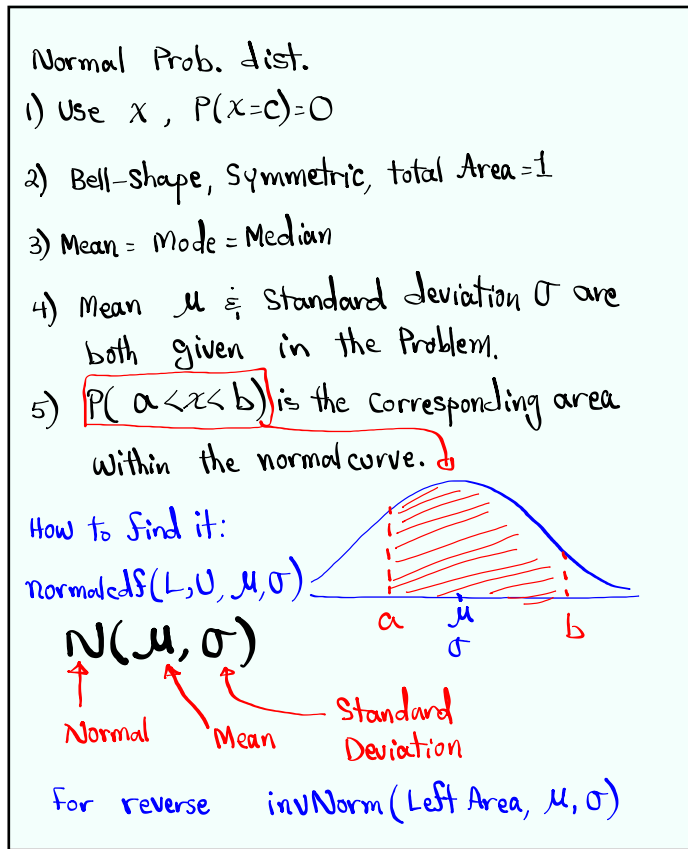 Normal Prob. dist.
1) Use x , P(x=c)=0
2) Bell-Shape, Symmetric, total Area=1
3) Mean = Mode = Median
4) Mean μ & Standard deviation σ are
both given in the Problem.
5) P( a<x<b) is the corresponding area
within the normal curve.
How to find it:
normalcdf(L,U, μ,σ)
a μ b
σ
N(μ,σ)
Normal Mean Standard
Deviation
For reverse invNorm(Left Area, μ, σ)